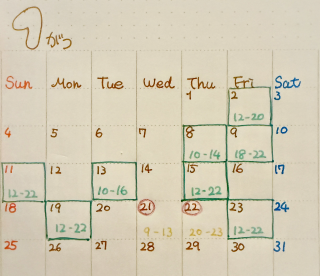 7がつ
Sun Mon Tue Wed Thu Fri Sat
1 2 3
12-20
4 5 6 7 8 9 10
10-14 18-22
11 12 13 14 15 16 17
12-22 10-16 12-22
18 19 20 21 22 23 24
12-22 9-13 20-23 12-22
25 26 27 28 29 30 31